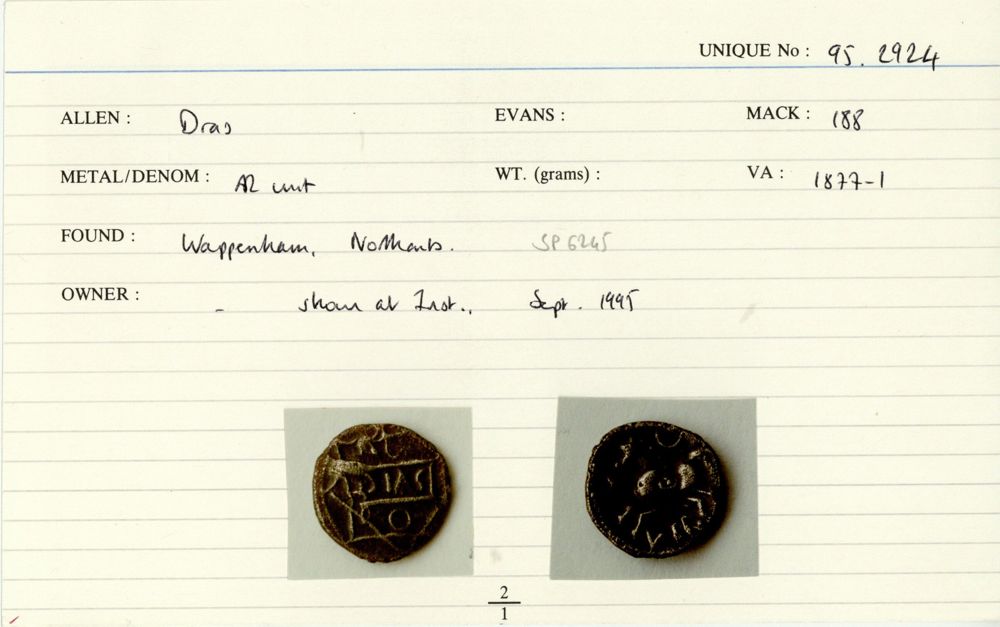 UNIQUE No : 95. 2924
ALLEN : Dras EVANS : MACK : 188
METAL/DENOM : AR unit WT. (grams) : VA : 1877-1
FOUND : Wappenham, Northants. SP 6245
OWNER : - shown at Inst., Sept. 1995
2
1